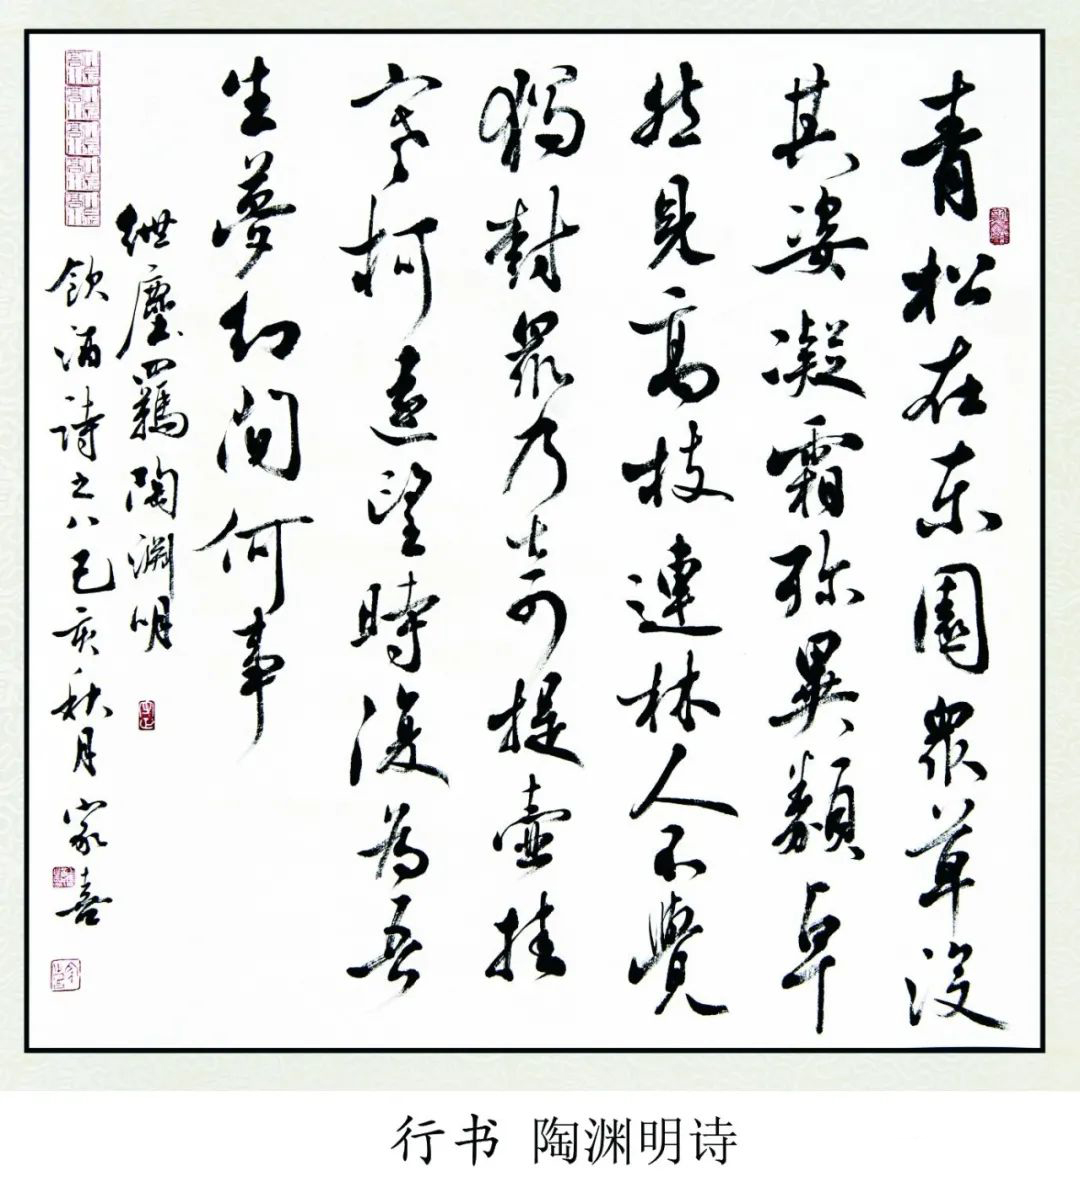 青松在东園眾草没
其姿凝霜殄異類卓
然見高枝連林人不覺
獨對眾乃奇提壺挂
寒柯遠望時復為吾
生夢幻間何事
紲塵羈陶淵明
飲酒詩之八己亥秋月家喜
行书 陶渊明诗